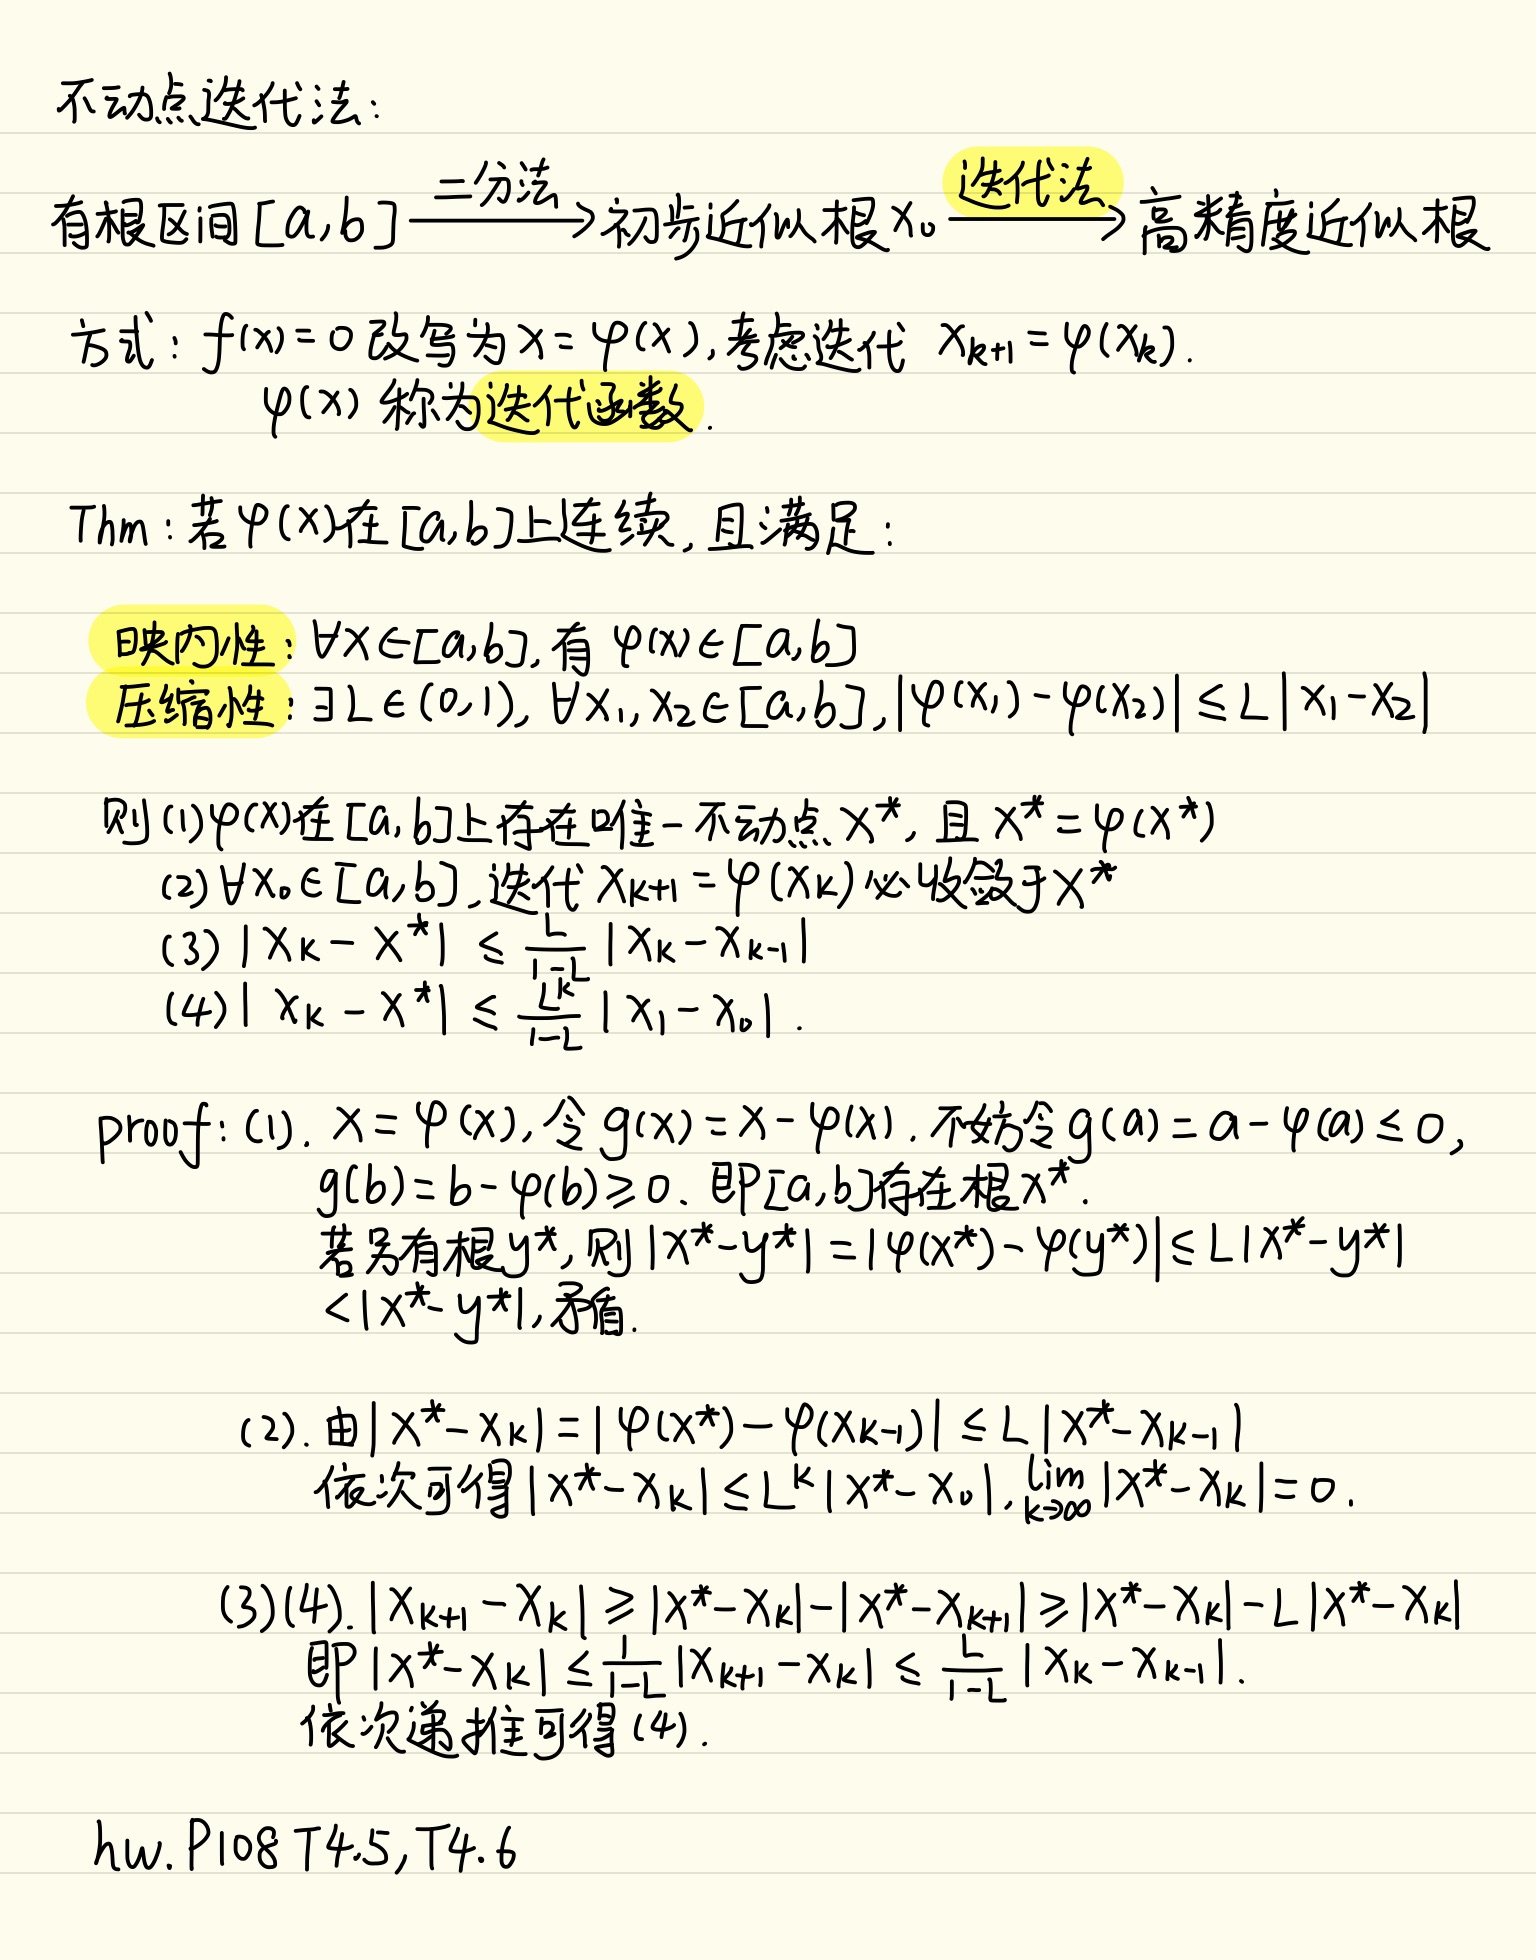 不动点迭代法:
有根区间[a,b] 二分法→ 初步近似根x₀ 迭代法→ 高精度近似根
方式: f(x)=0改写为x=φ(x),考虑迭代 x_{k+1}=φ(x_k).
φ(x) 称为迭代函数.
Thm: 若φ(x)在[a,b]上连续,且满足:
映内性: ∀x∈[a,b],有 φ(x)∈[a,b]
压缩性: ∃L∈(0,1), ∀x₁,x₂∈[a,b],|φ(x₁)-φ(x₂)|≤L|x₁-x₂|
则(1)φ(x)在[a,b]上存在唯一不动点x*,且x*=φ(x*)
(2)∀x₀∈[a,b],迭代x_{k+1}=φ(x_k)必收敛于x*
(3)|x_k-x*| ≤ \frac{L}{1-L}|x_k-x_{k-1}|
(4)|x_k-x*| ≤ \frac{L^k}{1-L}|x₁-x₀|.
proof: (1). x=φ(x),令g(x)=x-φ(x).不妨令g(a)=a-φ(a)≤0,
g(b)=b-φ(b)≥0.即[a,b]存在根x*.
若另有根y*,则|x*-y*|=|φ(x*)-φ(y*)|≤L|x*-y*|
<|x*-y*|,矛盾.
(2).由|x*-x_k|=|φ(x*)-φ(x_{k-1})|≤L|x*-x_{k-1}|
依次可得|x*-x_k|≤L^k|x*-x₀|, \lim_{k→∞}|x*-x_k|=0.
(3)(4).|x_{k+1}-x_k|≥|x*-x_k|-|x*-x_{k+1}|≥|x*-x_k|-L|x*-x_k|
即|x*-x_k|≤\frac{1}{1-L}|x_{k+1}-x_k|≤\frac{L}{1-L}|x_k-x_{k-1}|.
依次递推可得(4).
hw. P108 T4.5,T4.6